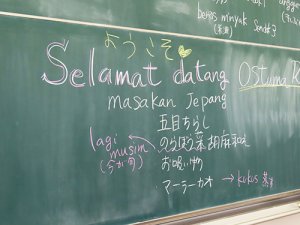 beras minyak
ようこそ
Selamat datang
Masakan Jepang
五目ちらし
lagi
musim
(今が旬)
のらぼう菜胡麻和え
お吸い物
マーラーカオ → kukus 蒸す